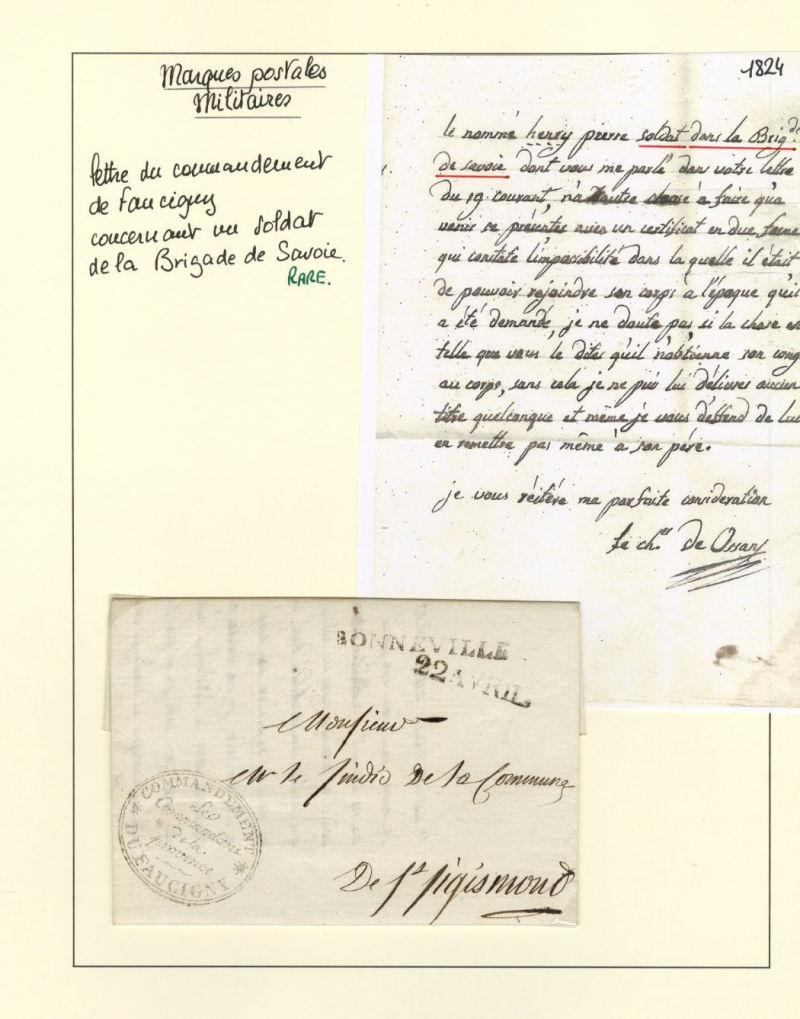 Marques postales
Militaires
lettre du commandement
de Faucigny
concernant un soldat
de la Brigade de Savoie.
RARE.
1824
le nommé henry pierre soldat dans la Brig.de
de savoie dont vous me parlé dans votre lettre
du 19 courant, n'a d'autre chose à faire qu'a
venir se présenter avec un certificat en due forme
qui constate l'impocibilité dans la quelle il était
de pouvoir rejoindre son corps a l'époque qu'il
a été demandé, je ne doute pas si la chose es
telle que vous le dites qu'il n'abtienne son cong
au corps, sans cela je ne puis lui délivrer aucun
titre quelconque et même je vous deffend de lui
en remettre pas même à son père.
je vous réitère ma parfaite consideration
le ch.er De Ossan
BONNEVILLE
22 AVRIL
Monsieur
Mr le sindic De la Commune
De St sigismond
COMMANDEMENT
DU FAUCIGNY
Le
Commandant
de la
province